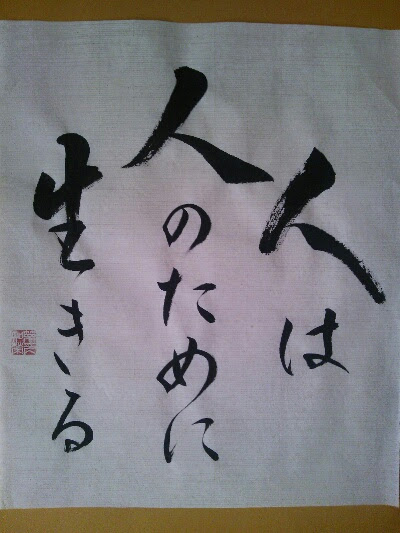 人は
人のために
生きる